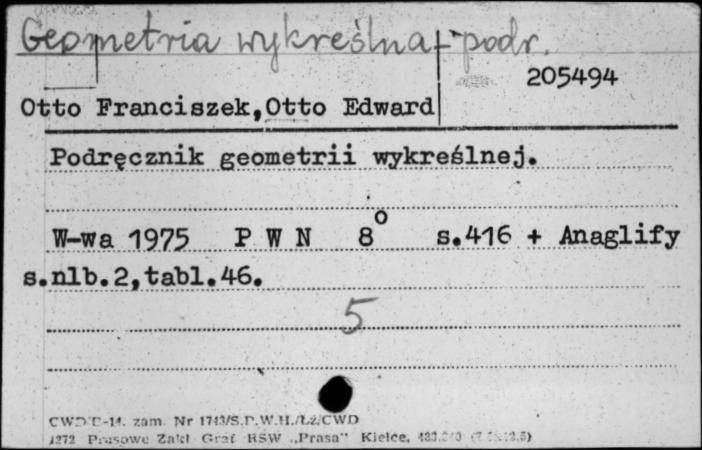 Geometria wykreślna - podr.
205494
Otto Franciszek, Otto Edward
Podręcznik geometrii wykreślnej.
W-wa 1975 P W N 8° s.416 + Anaglify
s.nlb.2,tabl.46.
5
CWD D-14. zam. Nr 1743/S.P.W.H./Łż/CWD
1272 Prasowe Zakł Graf RSW „Prasa” Kielce,